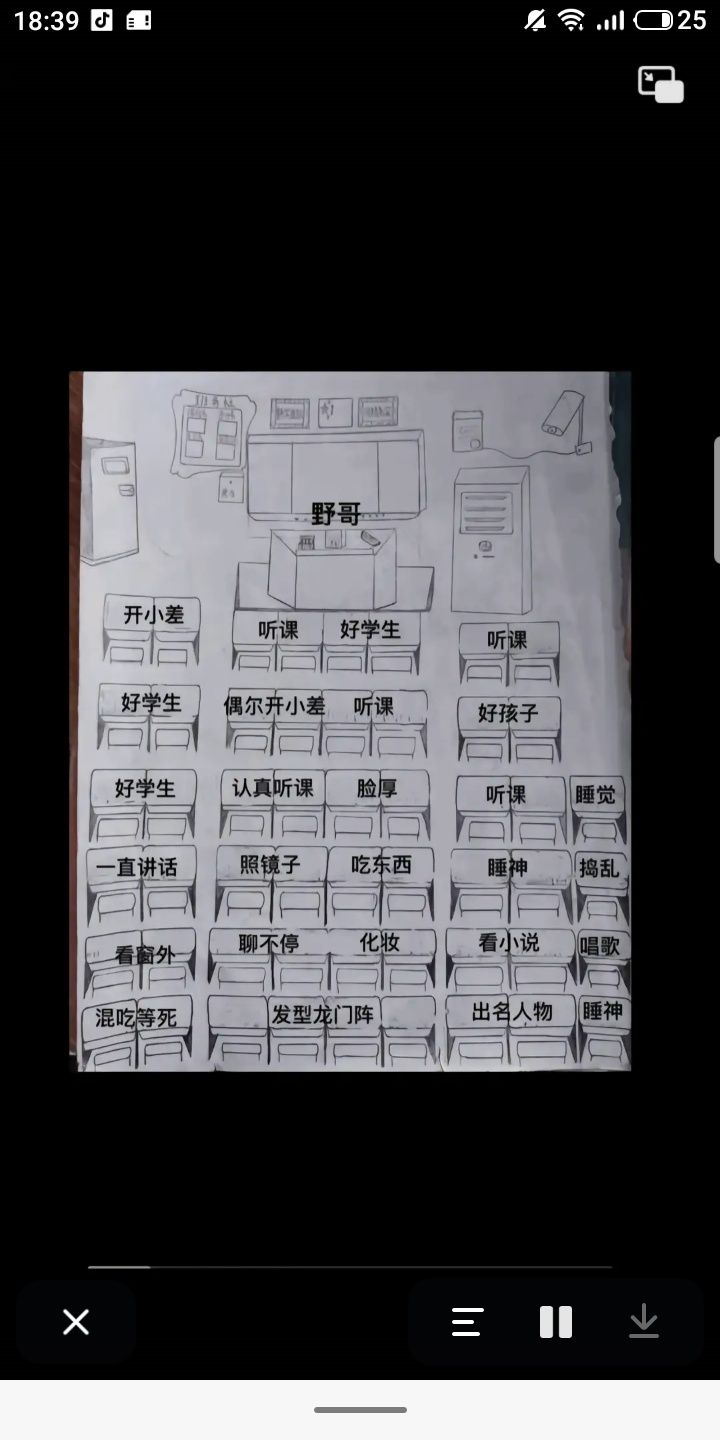 18:39
25
野哥
开小差
听课 好学生
听课
好学生
偶尔开小差 听课
好孩子
好学生
认真听课 脸厚
听课 睡觉
一直讲话
照镜子 吃东西
睡神 捣乱
看窗外
聊不停 化妆
看小说 唱歌
混吃等死
发型龙门阵
出名人物 睡神